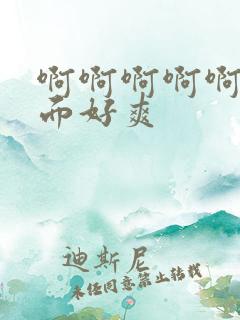 啊啊啊啊啊
而好爽
迪斯尼
未经同意禁止转载